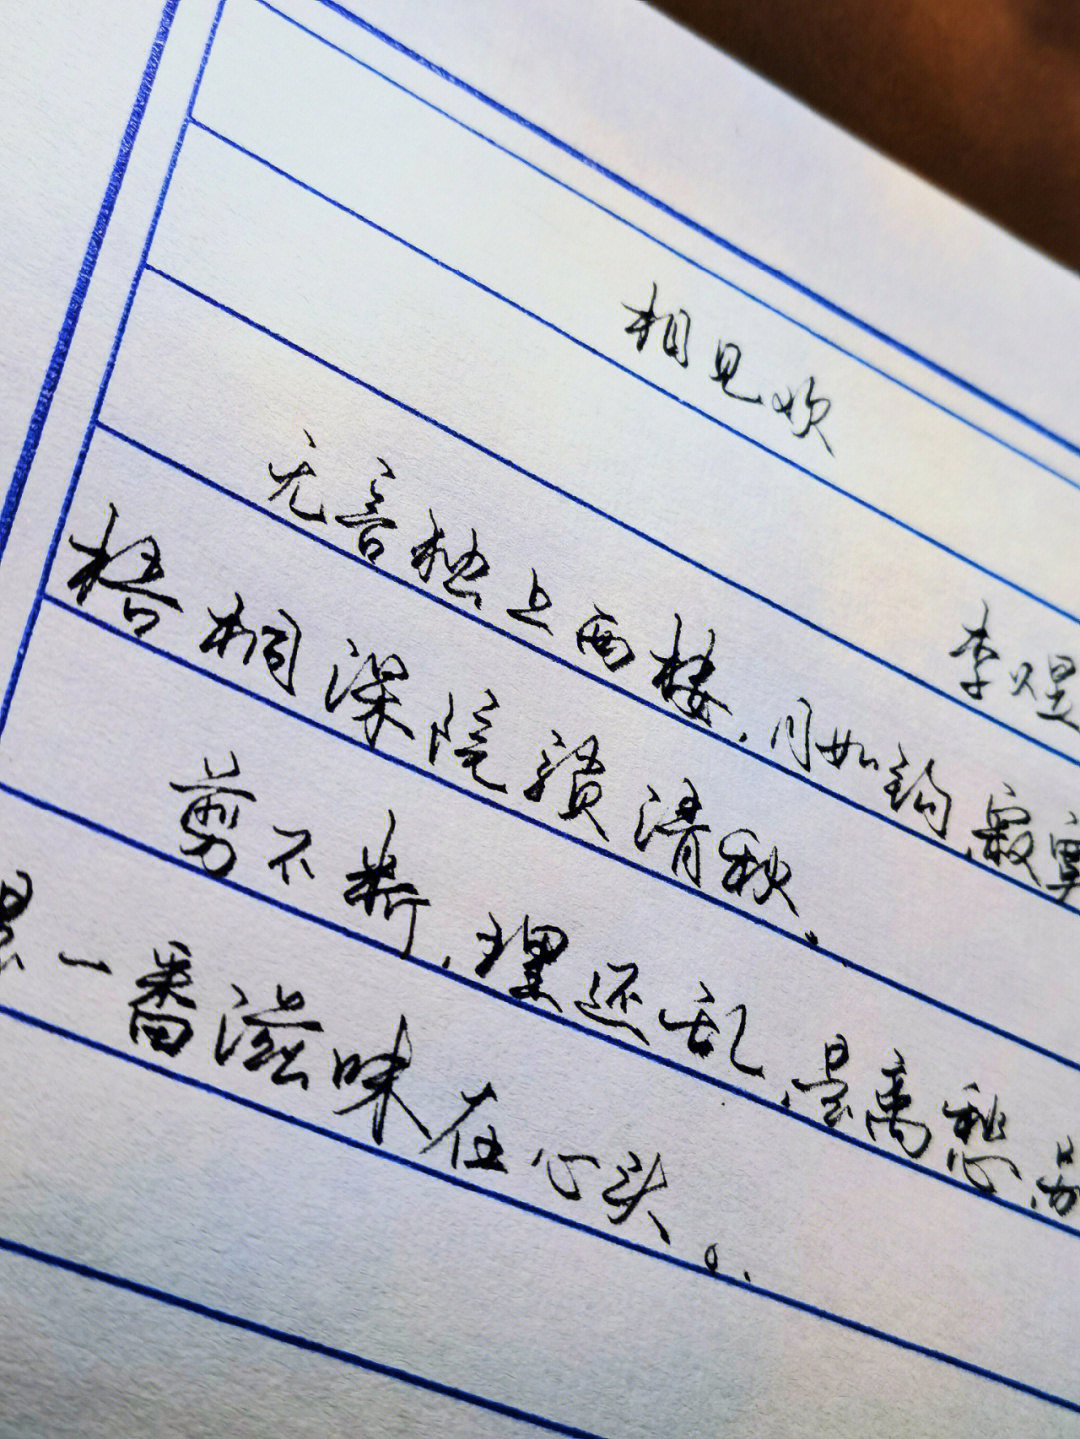 相见欢
李煜
无言独上西楼，月如钩，寂寞
梧桐深院锁清秋。
剪不断，理还乱，是离愁，别
是一番滋味在心头。